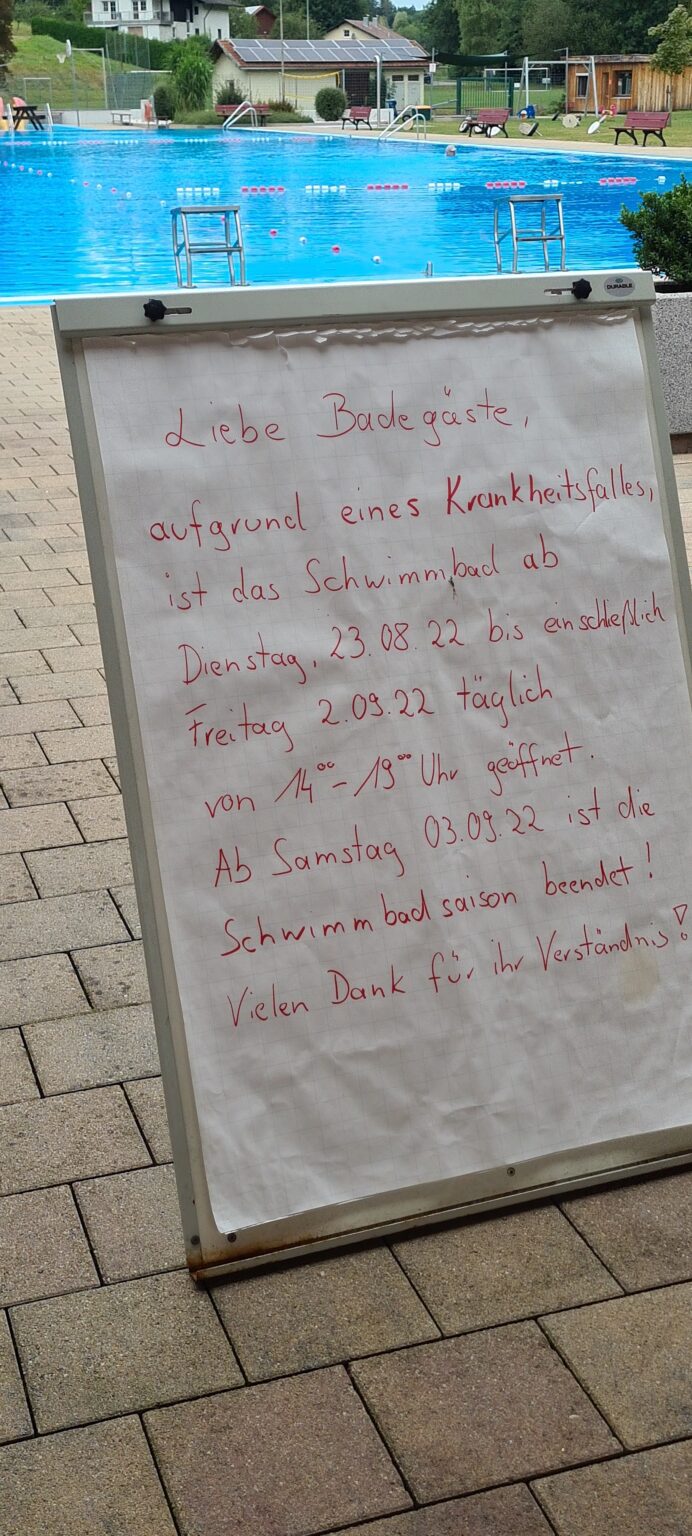 DURABLE
Liebe Badegäste,
aufgrund eines Krankheitsfalles,
ist das Schwimmbad ab
Dienstag, 23.08.22 bis einschließlich
Freitag 2.09.22 täglich
von 14⁰⁰ - 19⁰⁰ Uhr geöffnet.
Ab Samstag 03.09.22 ist die
Schwimmbadsaison beendet!
Vielen Dank für ihr Verständnis!